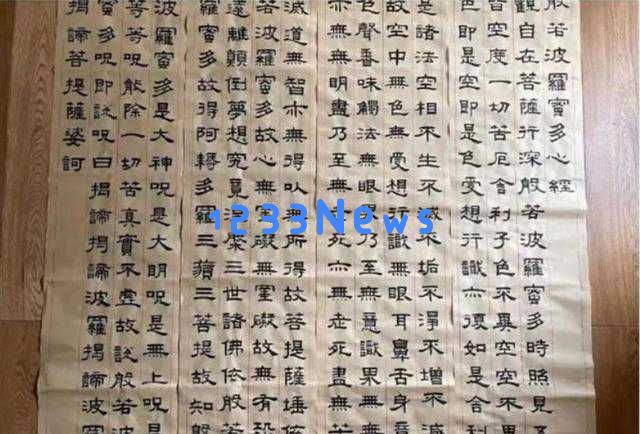 般若波羅蜜多心經
觀自在菩薩行深般若波羅蜜多時照見五
皆空度一切苦厄舍利子色不異空空不異
色即是空即是色受想行識亦復如是舍利
是諸法空相不生不滅不垢不淨不增不減
故空中無色無受想行識無眼耳鼻舌身意
色聲香味觸法無眼界乃至無意識界無無
無無明盡乃至無老死亦無老死盡無苦
滅道無智亦無得以無所得故菩提薩埵依
若波羅蜜多故心無罣礙無罣礙故無有恐
遠離顛倒夢想究竟涅槃三世諸佛依般若
羅蜜多故得阿耨多羅三藐三菩提故知般
波羅蜜多是大神咒是大明咒是無上咒是
等等咒能除一切苦真實不虛故說般若波
蜜多咒即說咒曰揭諦揭諦波羅揭諦波羅
揭諦菩提薩婆訶
1233News